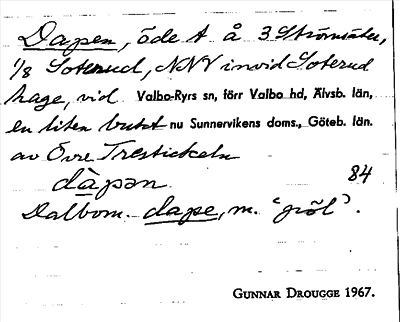 Dapen, öde t å 3 Strömsäter,
1/8 Soterud, NNV invid Soterud
hage, vid Valbo-Ryrs sn, förr Valbo hd, Älvsb. län,
en liten bukt nu Sunnervikens doms., Göteb. län.
av Övre Trestickeln
dàpan 84
Dalbom. dape, m. "göl".
GUNNAR DROUGGE 1967.